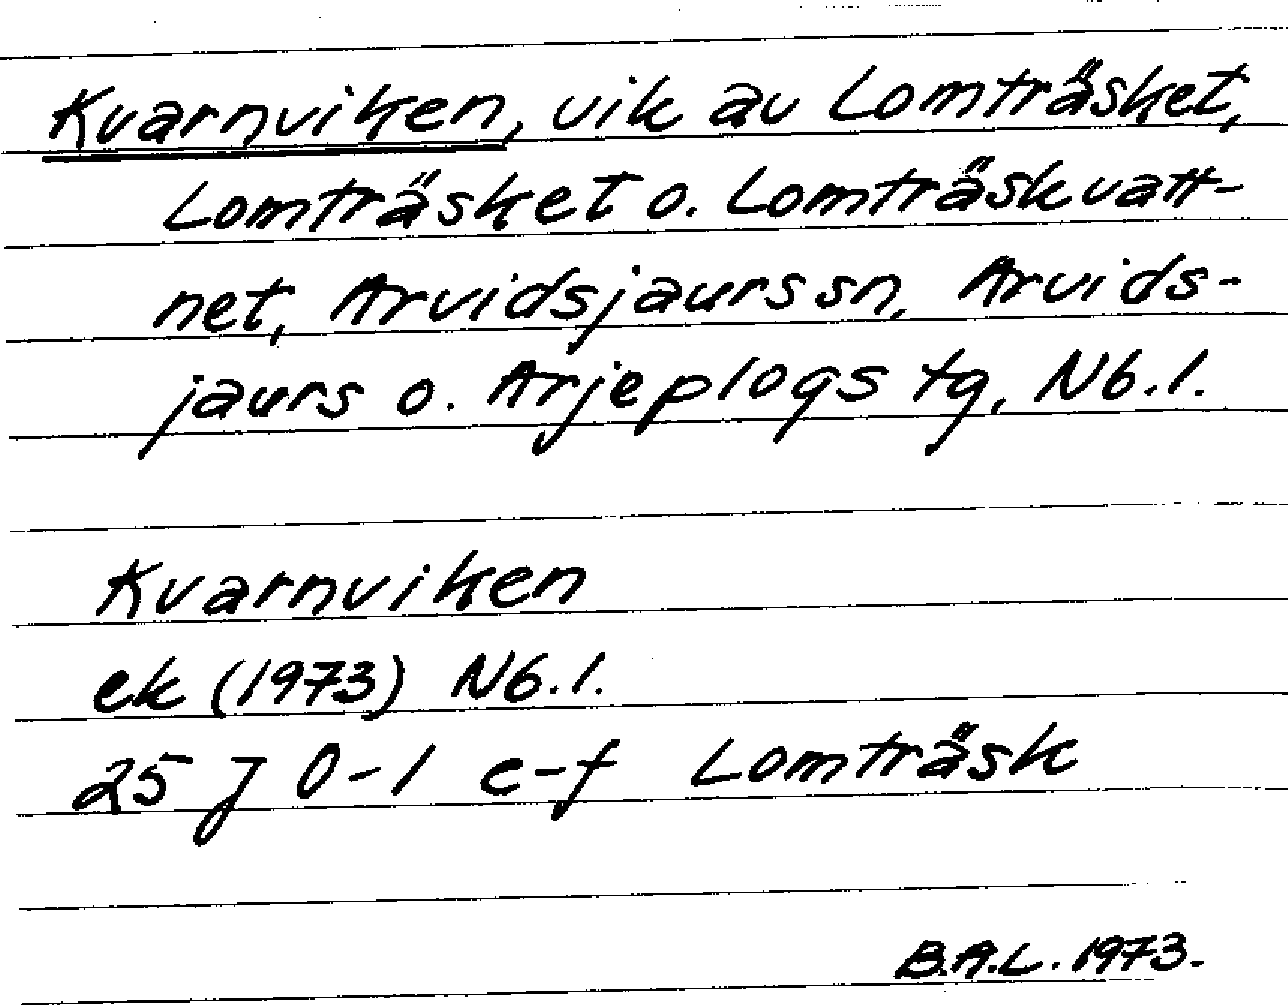 Kvarnviken, vik av Lomträsket,
Lomträsket o. Lomträskvatt-
net, Arvidsjaurs sn, Arvids-
jaurs o. Arjeplogs tg, Nb.l.
Kvarnviken
ek (1973) Nb.l.
25 J 0-1 e-f Lomträsk
B.A.L. 1973.